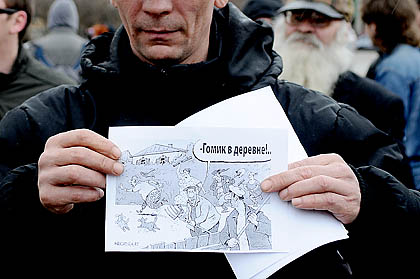 -Гомик в деревне!..